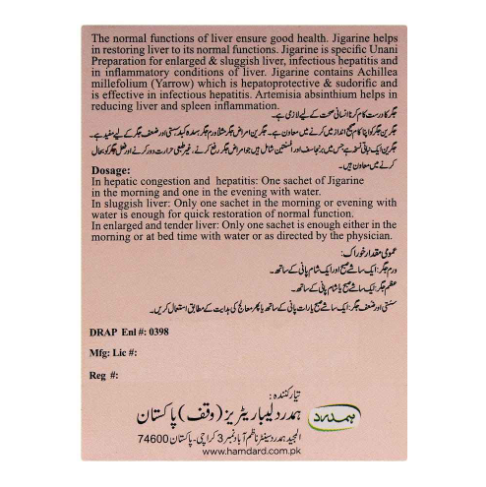 The normal functions of liver ensure good health. Jigarine helps
in restoring liver to its normal functions. Jigarine is specific Unani
Preparation for enlarged & sluggish liver, infectious hepatitis and
in inflammatory conditions of liver. Jigarine contains Achillea
millefolium (Yarrow) which is hepatoprotective & sudorific and
is effective in infectious hepatitis. Artemisia absinthium helps in
reducing liver and spleen inflammation.
جگر کا درست کام کرنا انسانی صحت کے لیے لازمی ہے۔
جگرین جگر کو اپنا کام صحیح انداز میں کرنے میں معاون ہے۔ جگرین امراض جگر مثلاً ورم جگر، سدہ کبد، سستی اور ضعف جگر کے لیے مفید ہے۔
جگرین ایک نباتی نسخہ ہے جس میں برنجاسف اور افسنتین شامل ہیں جو امراض جگر رفع کرنے، غیر طبعی حرارت دور کرنے اور فعل جگر کو بحال
کرنے میں معاون ہیں۔
Dosage:
In hepatic congestion and hepatitis: One sachet of Jigarine
in the morning and one in the evening with water.
In sluggish liver: Only one sachet in the morning or evening with
water is enough for quick restoration of normal function.
In enlarged and tender liver: Only one sachet is enough either in the
morning or at bed time with water or as directed by the physician.
عمومی مقدار خوراک:
ورم جگر: ایک ساشے صبح اور ایک شام پانی کے ساتھ۔
عظم جگر: ایک ساشے صبح یا شام پانی کے ساتھ۔
سستی اور ضعف جگر: ایک ساشے صبح یا رات پانی کے ساتھ یا پھر معالج کی ہدایت کے مطابق استعمال کریں۔
DRAP Enl #: 0398
Mfg: Lic #:
Reg #:
تیار کنندہ:
ہمدرد لیباریٹریز (وقف) پاکستان
ہمدرد
المجید ہمدرد سینٹر ناظم آباد نمبر 3 کراچی۔ پاکستان 74600
www.hamdard.com.pk